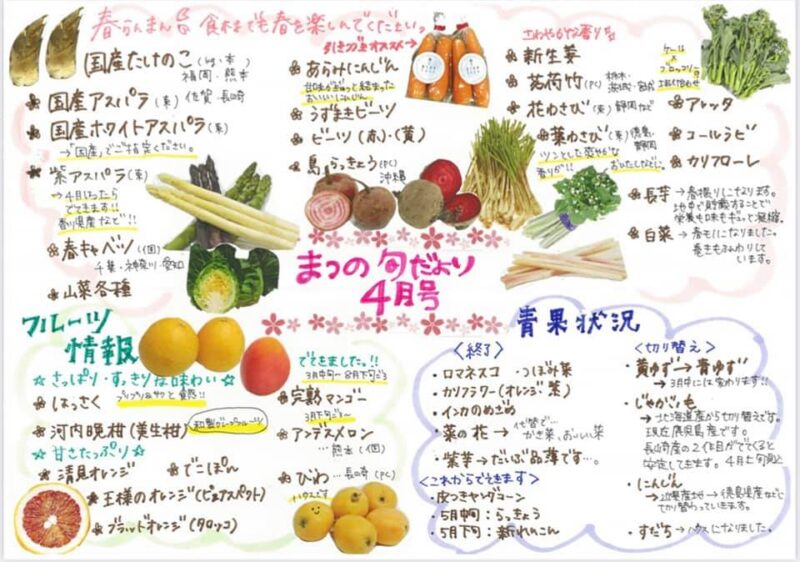 春らんまん旨 食材でも春を楽しんでください♪
国産たけのこ(他・本)
福岡・熊本
国産アスパラ(束)佐賀 長崎
国産ホワイトアスパラ(束)
→「国産」でご指定ください。
紫アスパラ(束)
→4月に入ったら
でてきます!!
香川県産など!!
春キャベツ(個)
千葉・神奈川・愛知
山菜各種
引き合オススメ→
あらみにんじん
甘味がぎゅっと詰まった
おいしいにんじん
うずまきビーツ
ビーツ(赤)・(黄)
島らっきょう(PC)
沖縄
さわやかな香り
新生姜
茗荷竹(PC)栃木
茨城・宮城
花わさび(束)静岡など
葉わさび(束)徳島
静岡
ツンとした爽やかな
香りが!!
おひたしなどに。
ケール
×
ブロッコリー
アレッタ
コールラビ
カリフローレ
長芋→春掘りになります。
地中で貯蔵することで
栄養も味もギュッと凝縮。
白菜→春モノになりました。
巻きもふんわりして
います。
まつの旬だより
4月号
フルーツ
情報
☆さっぱり・すっきりな味わい☆
はっさく プリプリ&サクと食感!!
河内晩柑(美生柑) 和製グレープフルーツ
☆甘さたっぷり☆
清見オレンジ でこぽん
王様のオレンジ(ピュアスペクト)
ブラッドオレンジ(タロッコ)
でてきました。!!
3月中旬〜8月下旬ごろ
完熟マンゴー
3月下旬〜
アンデスメロン
…熊本(個)
びわ…長崎(PC)
ハウスです
青果状況
<終了>
・ロマネスコ ・つぼみ菜
・カリフラワー(オレンジ・紫)
・インカのめざめ
・菜の花→代替で…
かき菜、おいしい菜
・紫芋→だいぶ品薄です…
<これからでてきます>
・皮つきヤングコーン
・5月中旬:らっきょう
・5月下旬:新れんこん
<切り替え>
・黄ゆず→青ゆず
→3月中には変わります!!
・じゃがいも
→北海道産から切り替えです。
現在鹿児島産です。
長崎産の2作目がでてくると
安定してきます。4月上旬見込
・にんじん
→近県産地→徳島県産など
切り替わっていきます。
・すだち→ハウスになりました。